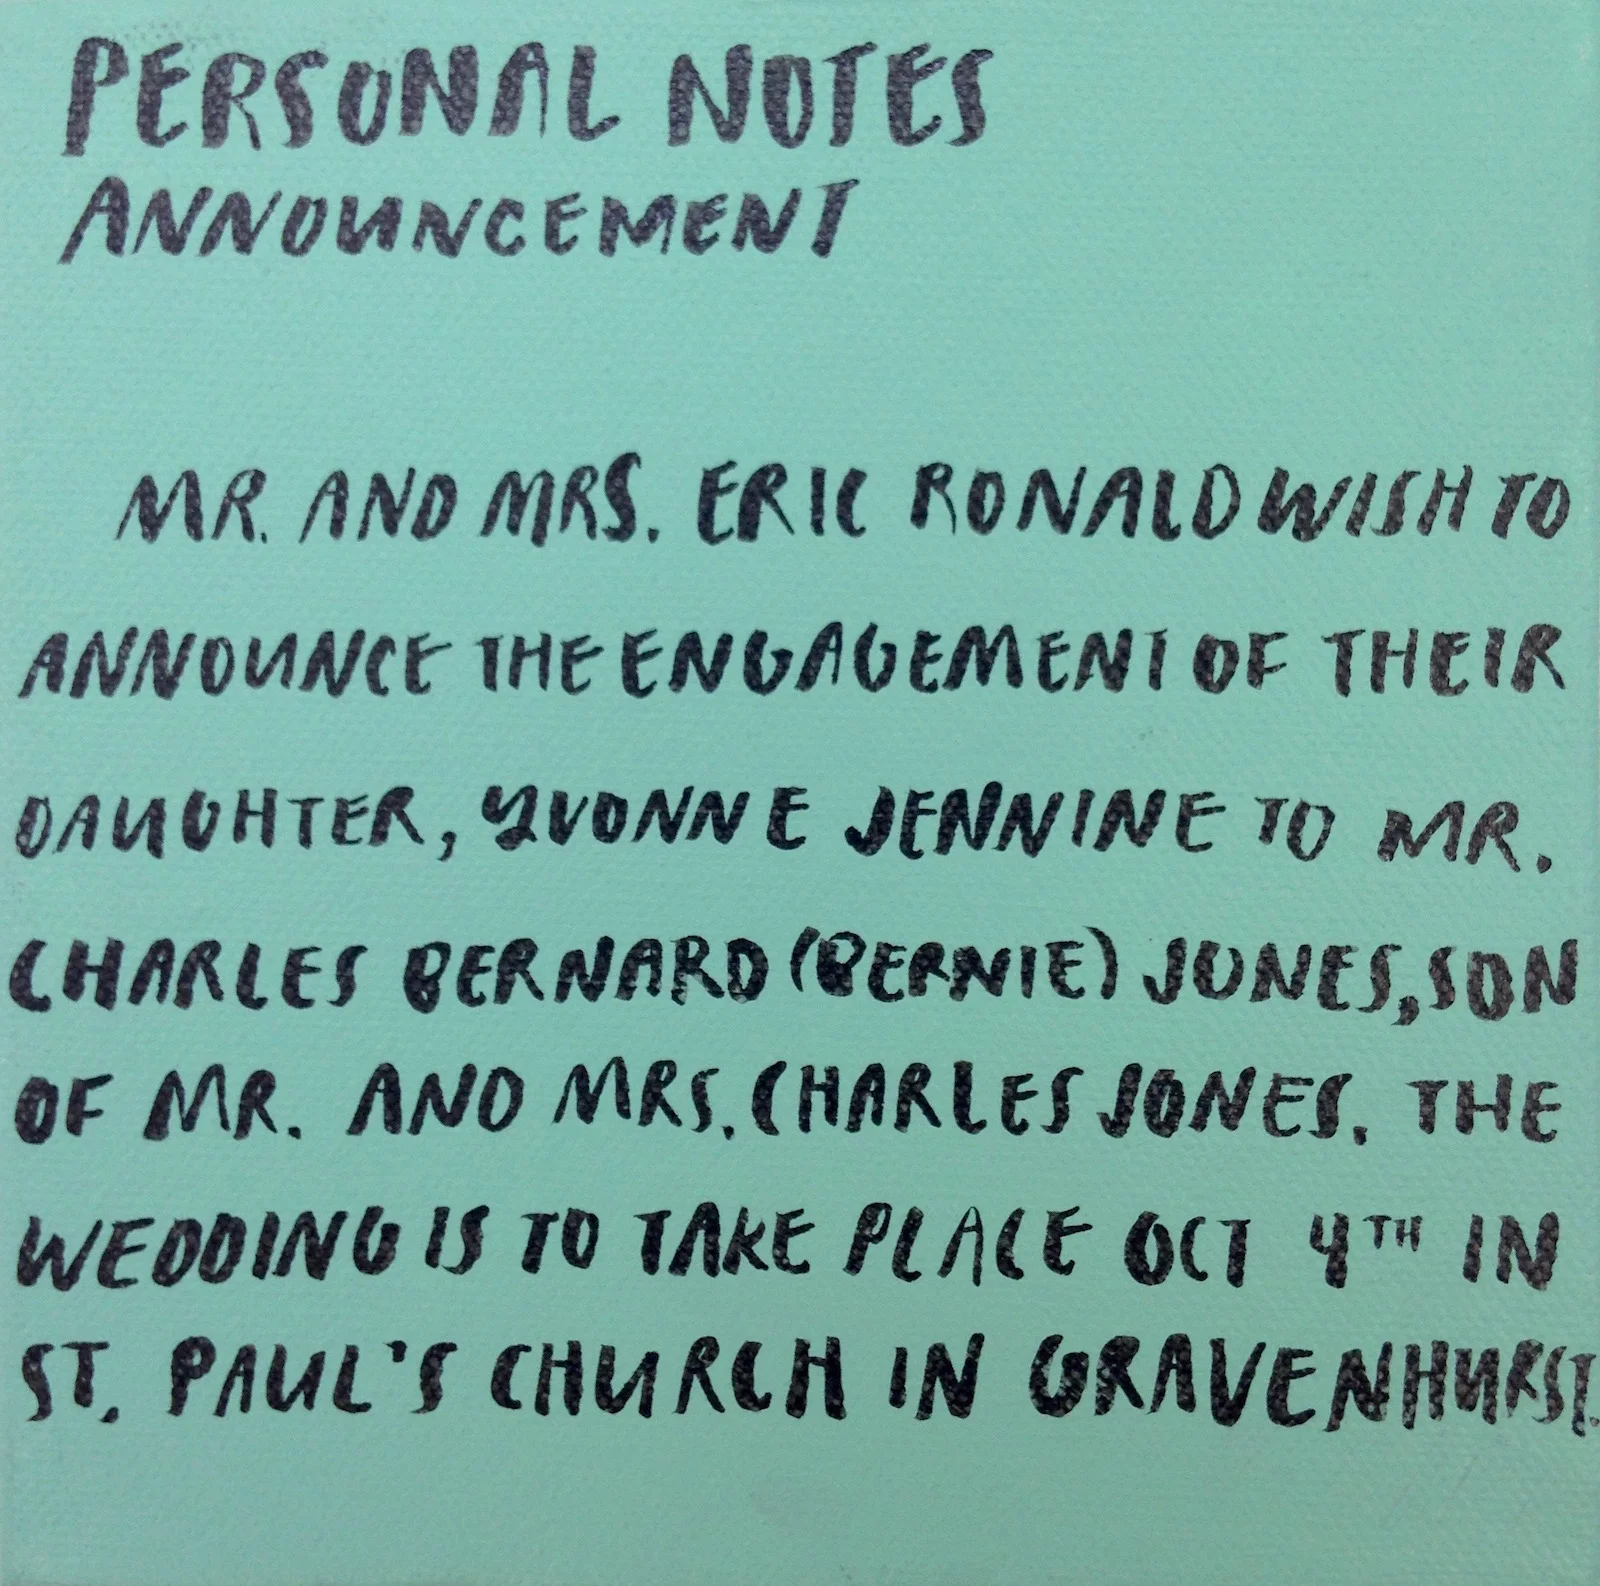 PERSONAL NOTES
ANNOUNCEMENT
MR. AND MRS. ERIC RONALD WISH TO
ANNOUNCE THE ENGAGEMENT OF THEIR
DAUGHTER, YVONNE JENNINE TO MR.
CHARLES BERNARD (BERNIE) JONES, SON
OF MR. AND MRS. CHARLES JONES. THE
WEDDING IS TO TAKE PLACE OCT 4TH IN
ST. PAUL'S CHURCH IN GRAVENHURST.